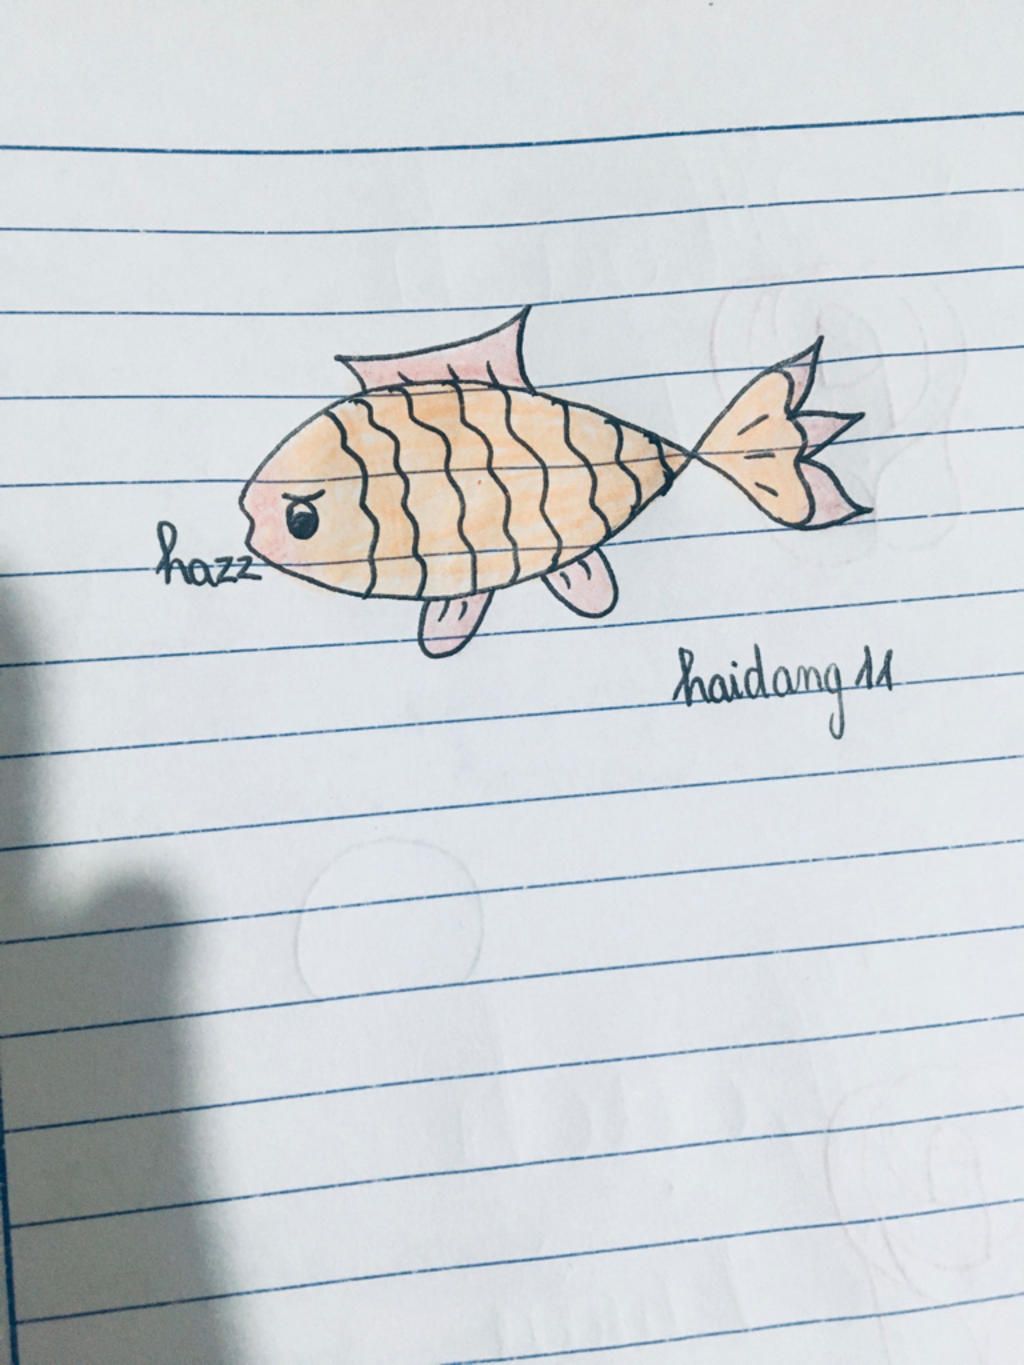 hazz
haidang 11